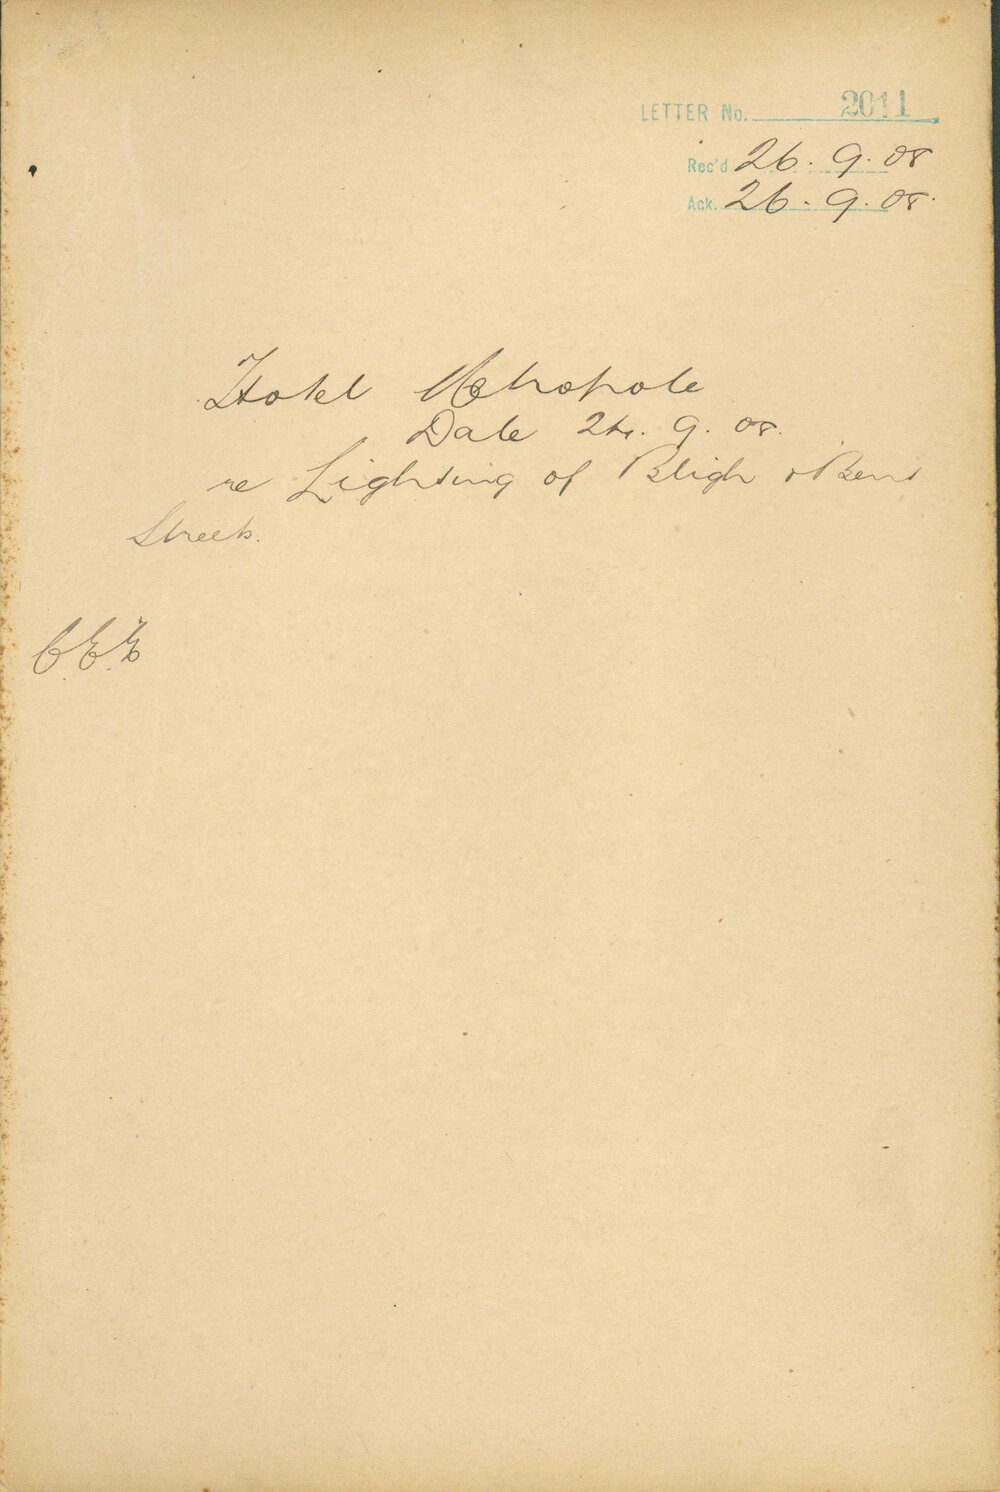 LETTER No. 2011
Rec'd 26. 9. 08
Ack. 26. 9. 08.
Hotel Metropole
Date 24. 9. 08.
re Lighting of Bligh & Bent
Streets.
C.E.E